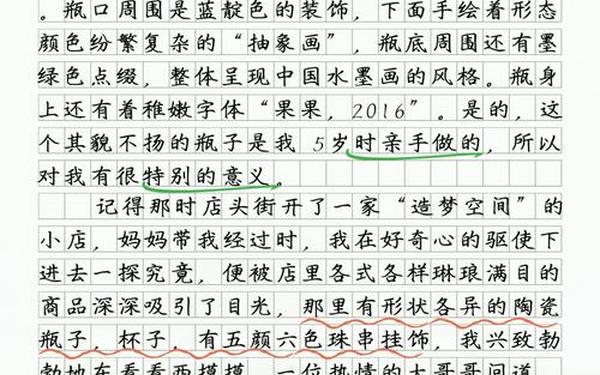 。瓶口周围是蓝靛色的装饰，下面手绘着形态
颜色纷繁复杂的“抽象画”，瓶底周围还有墨
绿色点缀，整体呈现中国水墨画的风格。瓶身
上还有着稚嫩字体“果果，2016”。是的，这
个其貌不扬的瓶子是我 5岁时亲手做的，所以
对我有很特别的意义。
记得那时店头街开了一家“造梦空间”的
小店，妈妈带我经过时，我在好奇心的驱使下
进去一探究竟，便被店里各式各样琳琅满目的
商品深深吸引了目光，那里有形状各异的陶瓷
瓶子，杯子，有五颜六色珠串挂饰，我兴致勃
勃地东看看西摸摸，一位热情的大哥哥问道